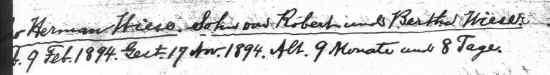 Herman Wiese. Sohn von Robert und Bertha Wiese.
9 Feb. 1894. Gest. 17 Nov. 1894. Alt. 9 Monate und 8 Tage.